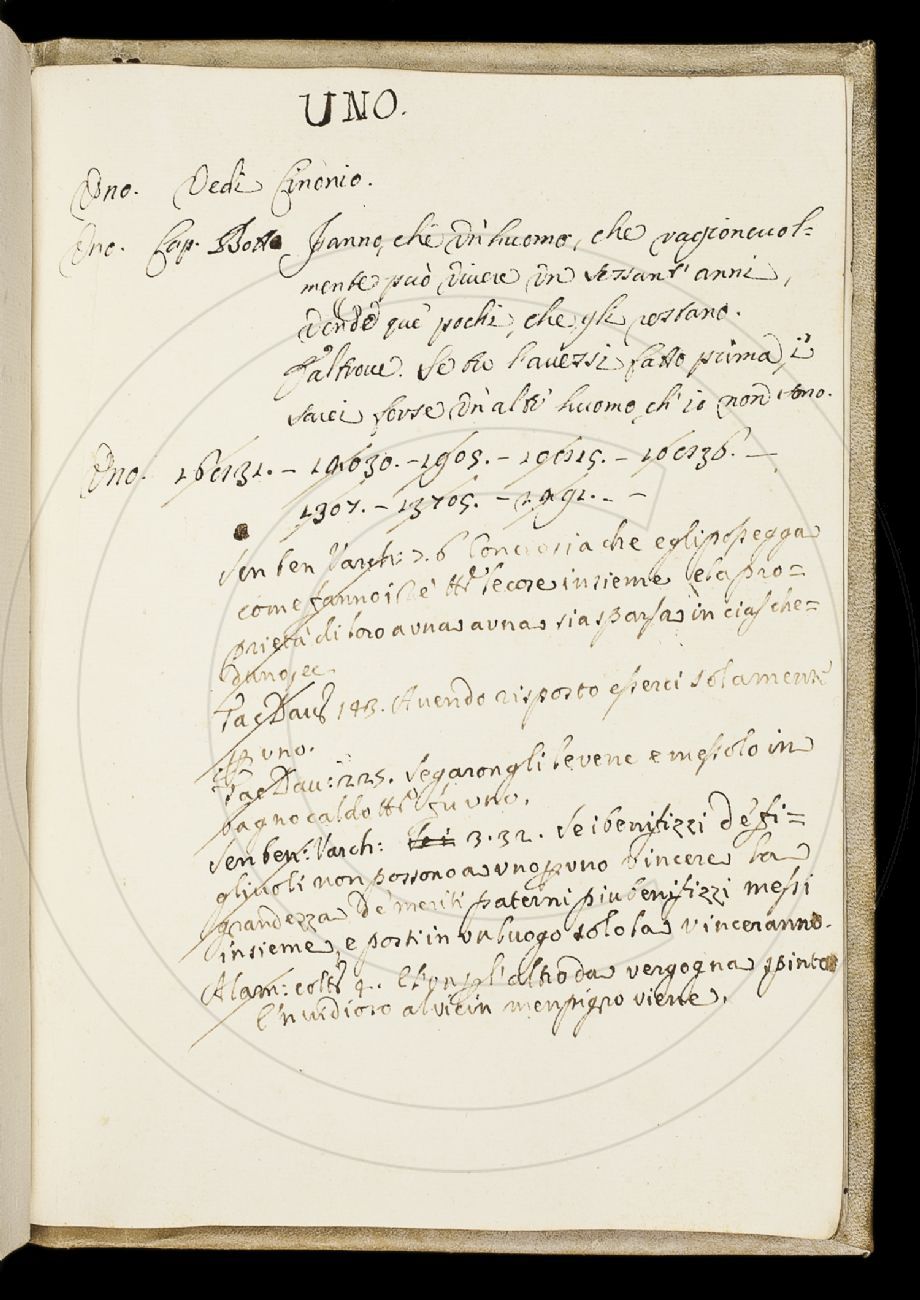 UNO.
Uno. Vedi Cinonio.
Uno. Cap. Botta Fanno, che un' huomo, che ragioneuol=
mente può viuere un sessant' anni,
uendè què pochi, che gli restano.
E altroue. Se tu l'auessi fatto prima, i'
sarei forse un' altr' huomo, ch' io non sono.
Uno. 16131. – 19630. – 1905. – – 
1307. – 13705. – 1991. – –
Sen ben Varch: 7. 6 Conciosia che egli
come fanno i tt.e le cose insieme, e la pro=
prietà di loro a una a una sia sparsa in ciasche=
duno, ec.
Tac Dau: 143. Auendo risposto esserci solamente
uno.
Tac Dau: 225. Segarongli le vene e messolo in
bagno caldo tt.o fu uno.
Sen ben: Varch: 3. 32. Se i benifizzi de' fi=
gliuoli non possono a uno p uno vincere la
grandezza de' meriti paterni piu benifizzi messi
insieme, e posti in un luogo solo la vinceranno.
Alam: colt: 4. l'altro da vergogna spinto
l'inuidioso al vicin men pigro viene.